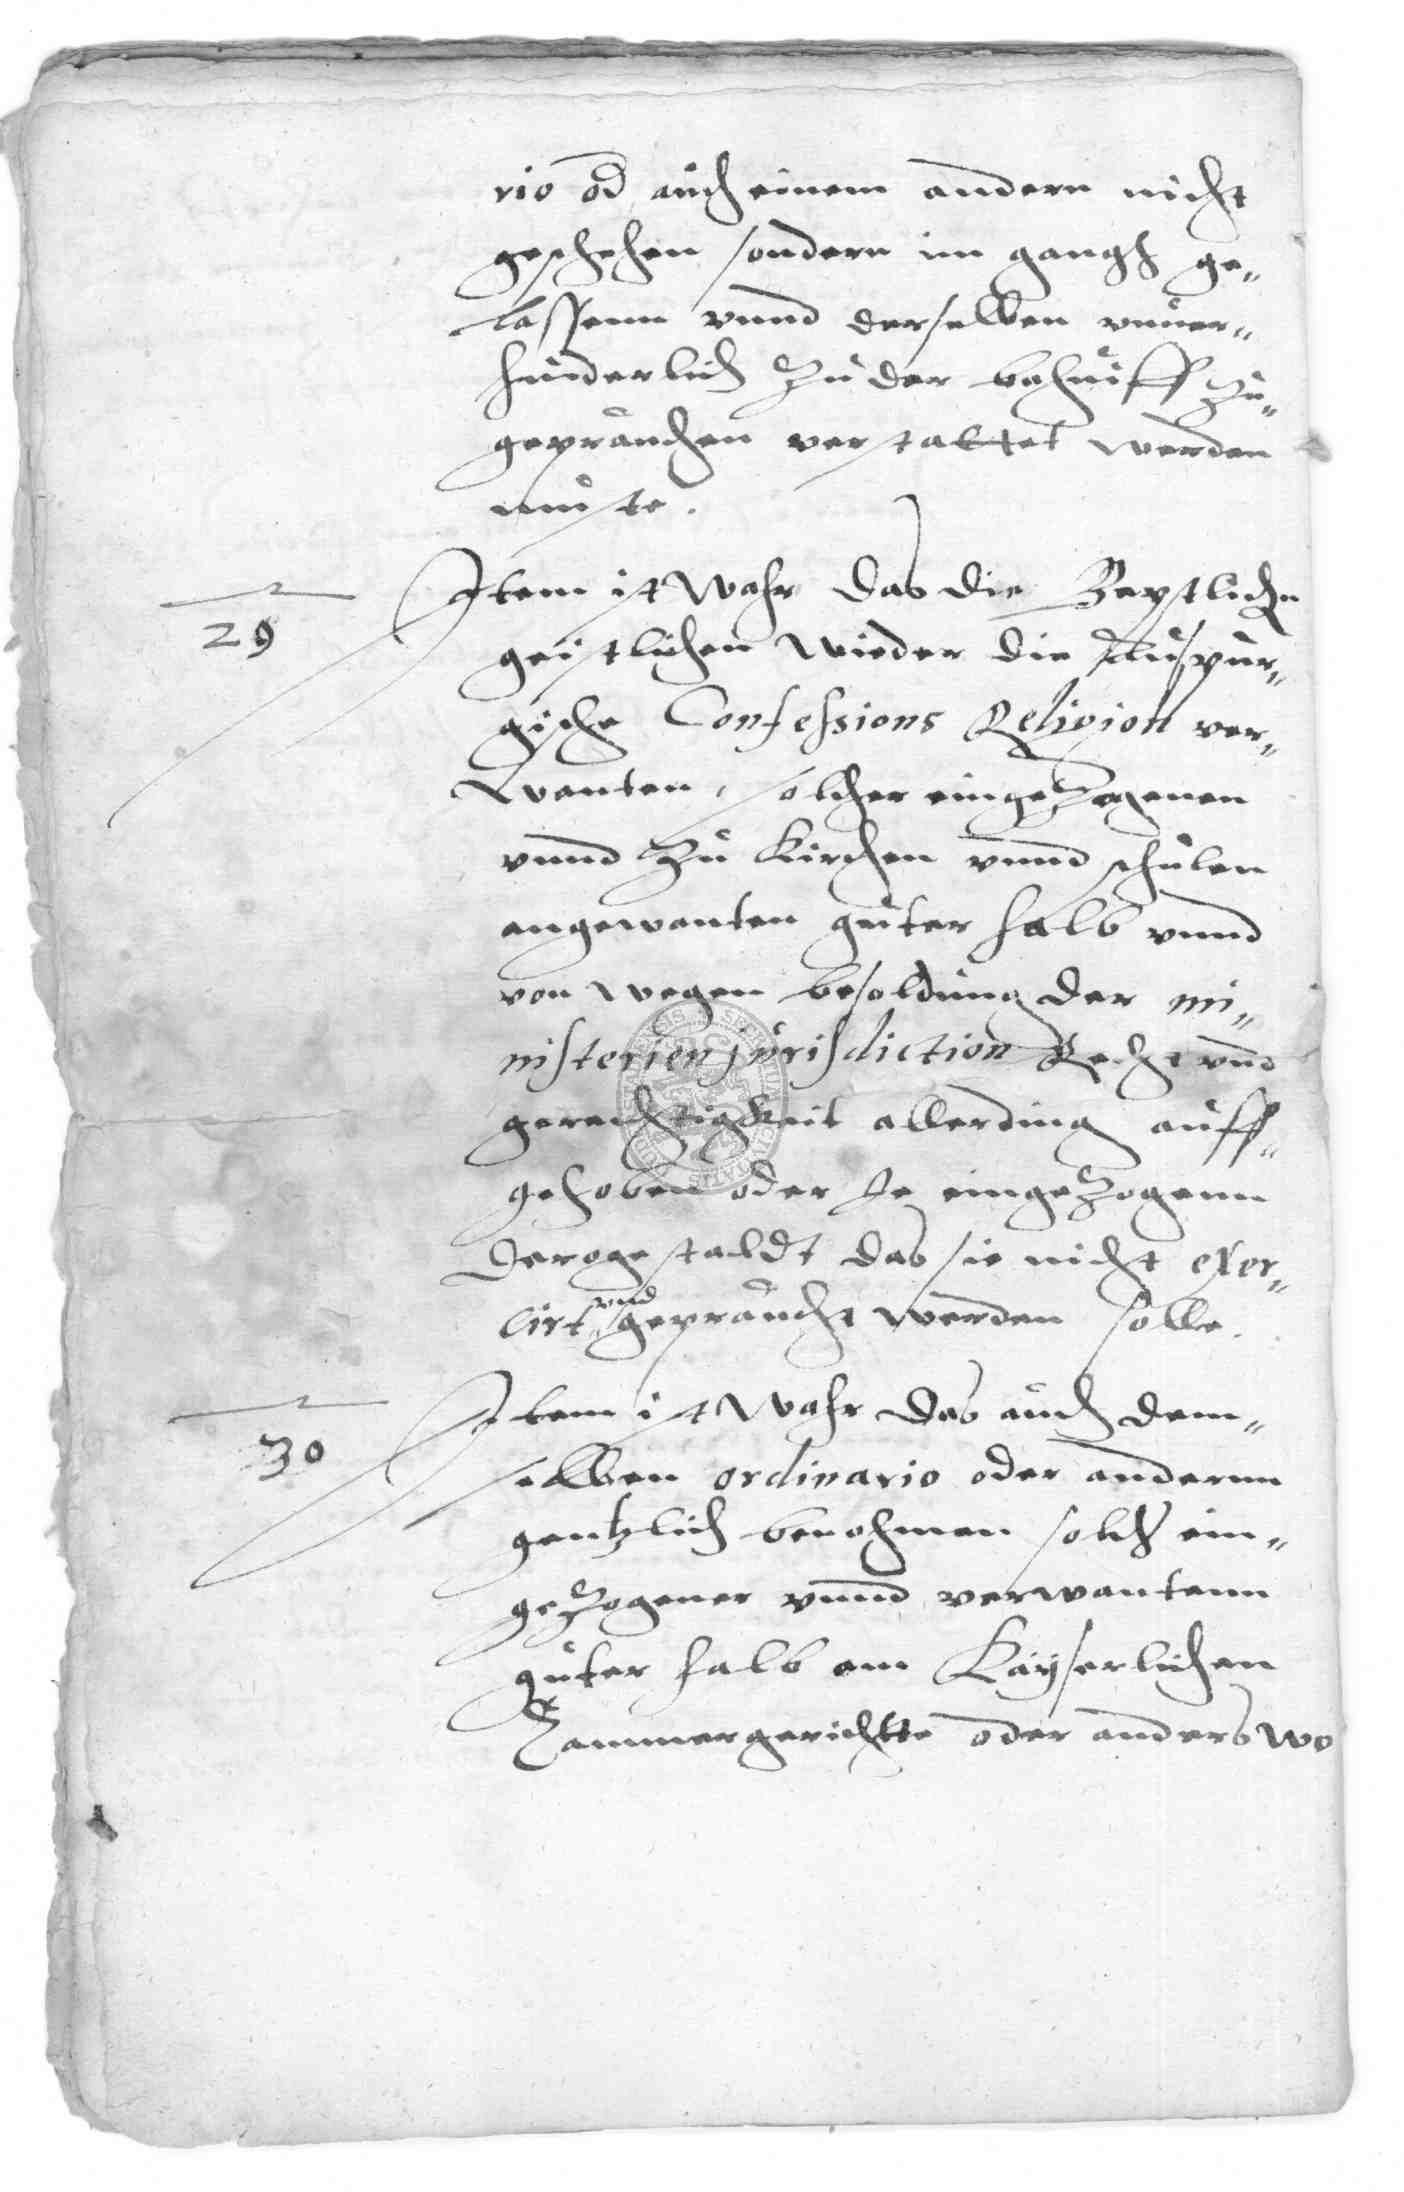 rio od auch einem andern nicht
geschehen sondern im gangh ge„
lassenn vnnd derselben vnuer„
hinderlich zu der behuiff zu„
geprauchen verstattet werden
muste.
29
Item ist wahr das die Bapstlichen
geistlichen wieder die Auspur„
gische Confessions Religion ver„
wanten, solcher eingezogenen
vnnd zu Kirchen vnnd schulen
angewanten guter halb vnnd
von wegen besoldung der mi„
nisterien jurisdiction Recht vnd
gerechtigkeit allerding auff„
gehoben oder Je eingezogenn
derogestaldt das sie nicht exer„
cirt vnd gepraucht werden solle.
30
Item ist wahr das auch dem„
selben ordinario oder andernn
gentzlich benohmen solch ein„
gezogener vnnd verwantenn
guter halb am Kayserlichen
Cammergerichtte oder anderswo